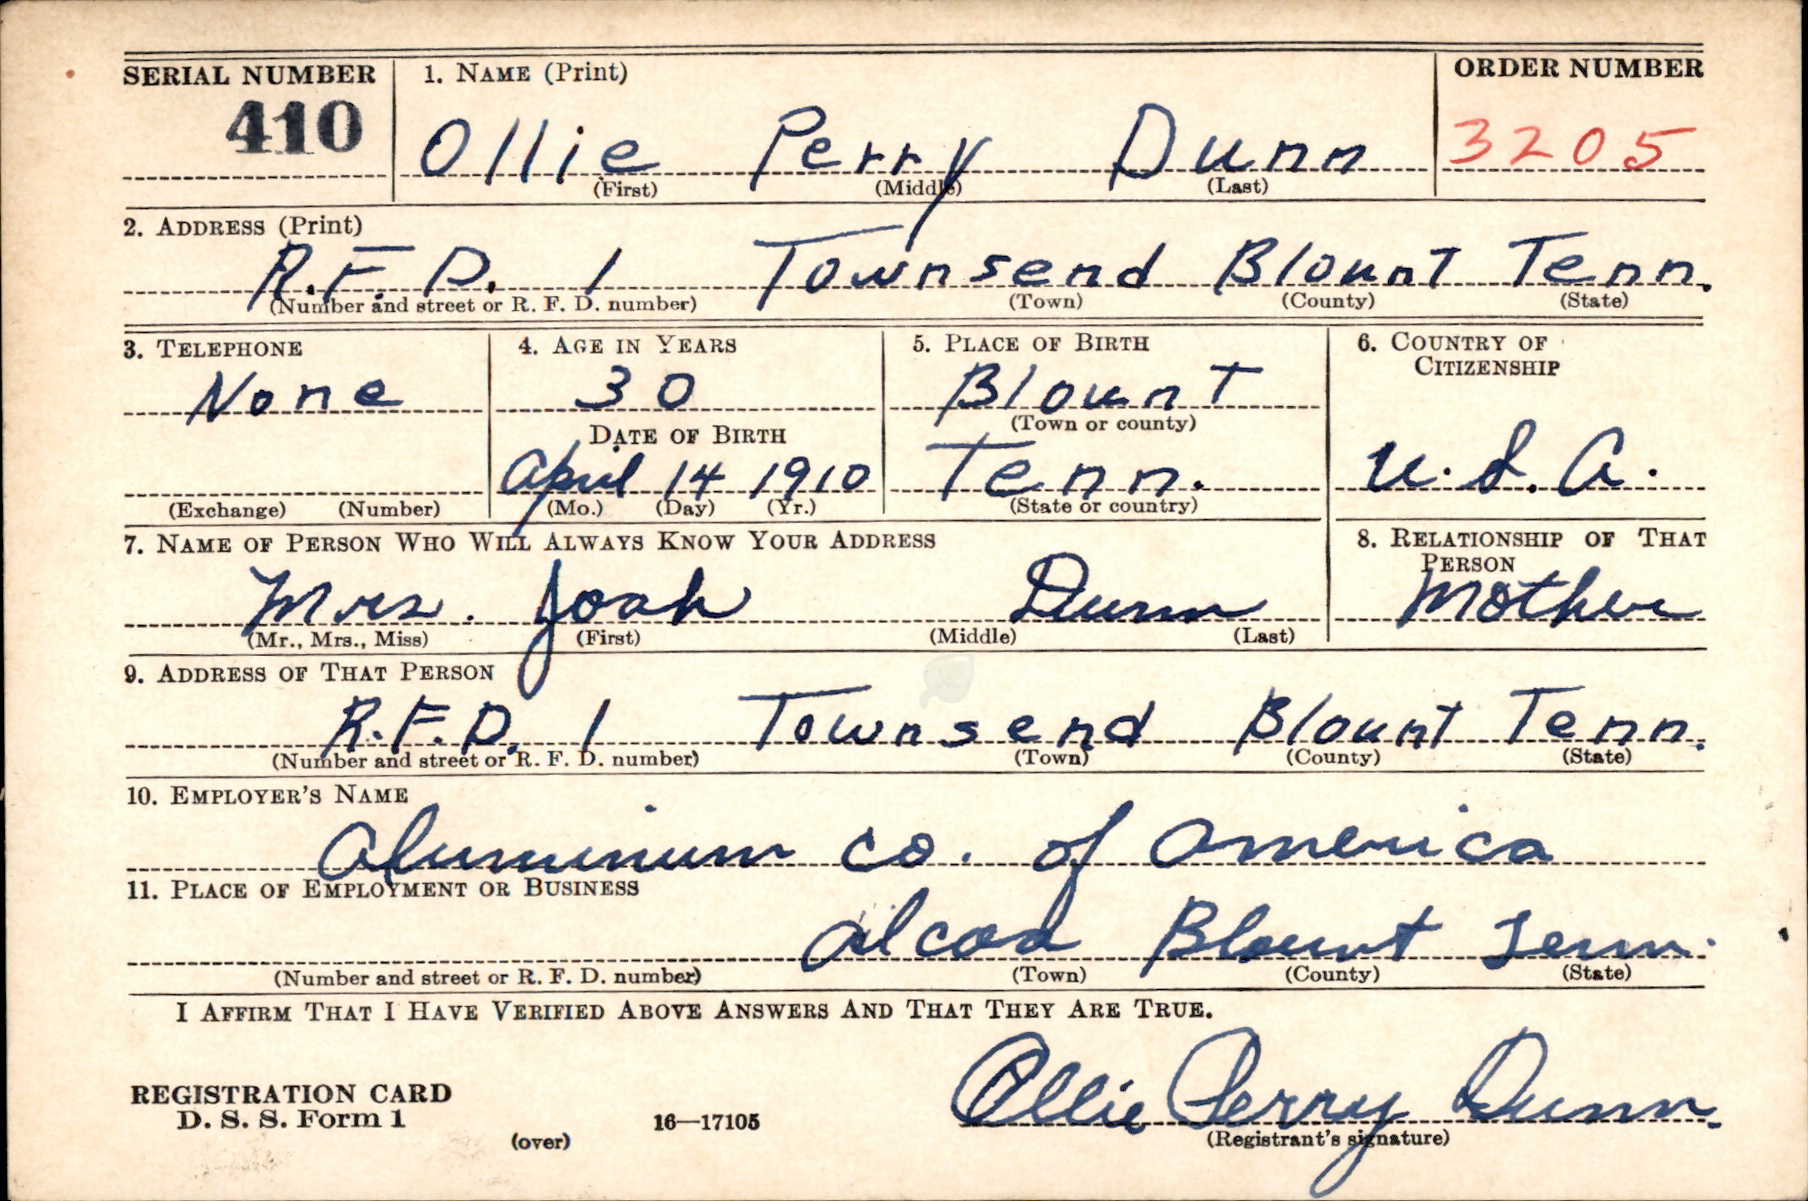 SERIAL NUMBER 1. NAME (Print) ORDER NUMBER
410 Ollie Perry Dunn 3205
(First) (Middle) (Last)
2. ADDRESS (Print)
R.F.D. 1 Townsend Blount Tenn.
(Number and street or R. F. D. number) (Town) (County) (State)
3. TELEPHONE 4. AGE IN YEARS 5. PLACE OF BIRTH 6. COUNTRY OF
CITIZENSHIP
None 30 Blount
(Town or county)
DATE OF BIRTH
April 14 1910 Tenn. U.S.A.
(Exchange) (Number) (Mo.) (Day) (Yr.) (State or country)
7. NAME OF PERSON WHO WILL ALWAYS KNOW YOUR ADDRESS 8. RELATIONSHIP OF THAT
PERSON
Mrs. Joah Dunn Mother
(Mr., Mrs., Miss) (First) (Middle) (Last)
9. ADDRESS OF THAT PERSON
R.F.D. 1 Townsend Blount Tenn.
(Number and street or R. F. D. number) (Town) (County) (State)
10. EMPLOYER'S NAME
Aluminum Co. of America
11. PLACE OF EMPLOYMENT OR BUSINESS
Alcoa Blount Tenn.
(Number and street or R. F. D. number) (Town) (County) (State)
I AFFIRM THAT I HAVE VERIFIED ABOVE ANSWERS AND THAT THEY ARE TRUE.
Ollie Perry Dunn.
(Registrant's signature)
REGISTRATION CARD
D. S. S. Form 1 16—17105
(over)